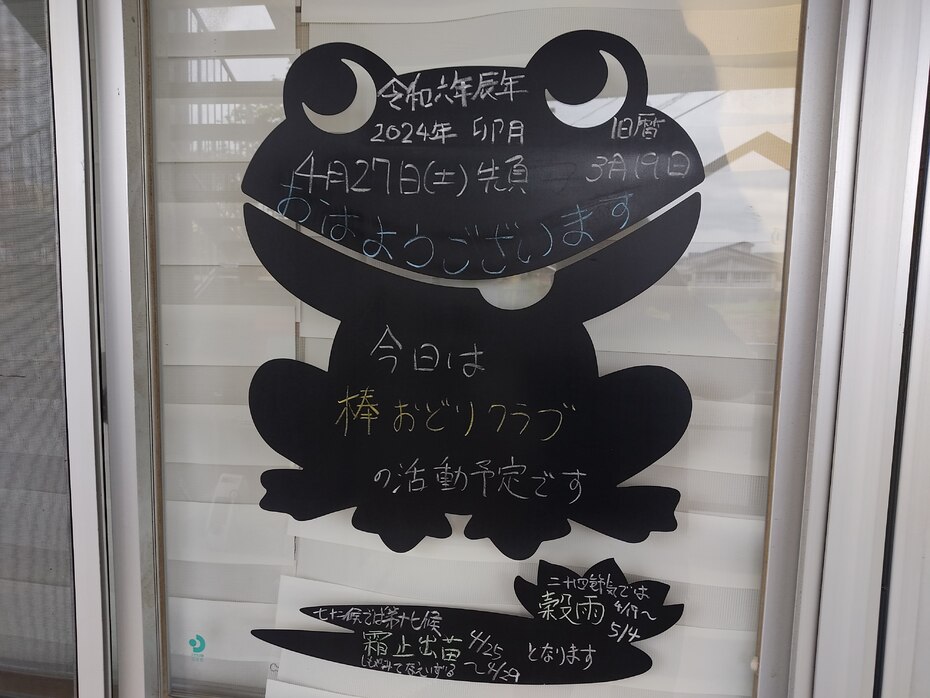 令和六年辰年
2024年 卯月 旧暦
4月27日(土) 先負 3月19日
おはようございます
今日は
棒おどりクラブ
の活動予定です
二十四節気では
穀雨 4/19〜
5/4
七十二候では第十七候
霜止出苗 4/25
しもやみてなえいずる 〜4/29
となります